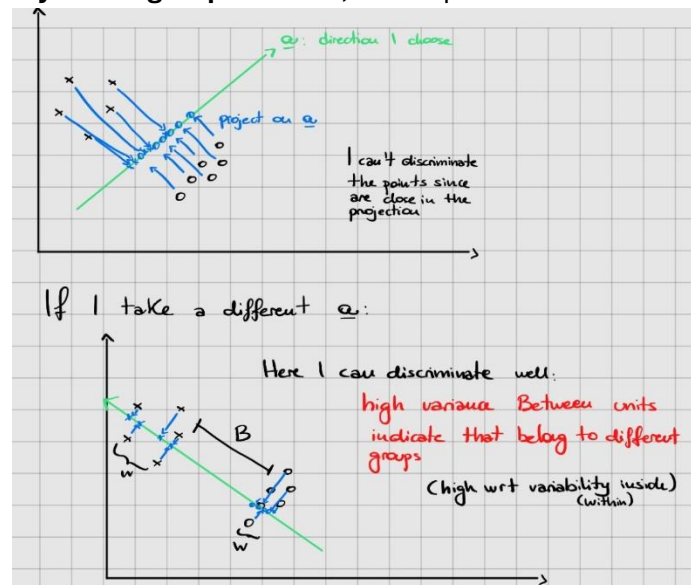 a: direction I choose
project on a
I can't discriminate
the points since
are close in the
projection
If I take a different a:
Here I can discriminate well:
high variance Between units
indicate that belong to different
groups
(high wrt variability inside)
(within)
B
W
W